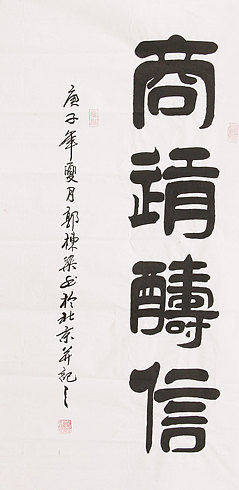 商道醻信
庚子年夏月郭棟梁书於北京并記之